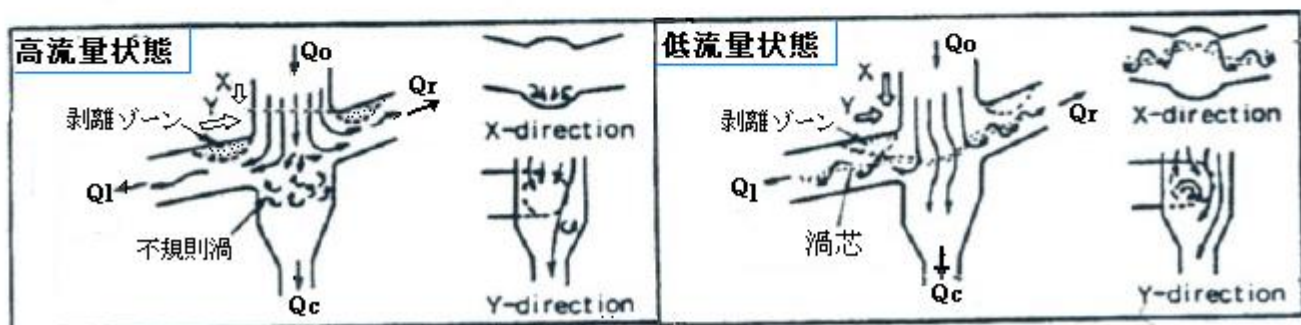 高流量状態
Qo
X
Y
Qr
剥離ゾーン
Ql
不規則渦
Qc
X-direction
Y-direction
低流量状態
Qo
X
Y
剥離ゾーン
Qr
Ql
渦芯
Qc
X-direction
Y-direction